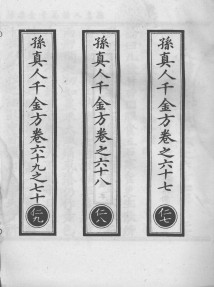 孫真人千金方卷之六十七
仁七
孫真人千金方卷之六十八
仁八
孫真人千金方卷六十九之七十
仁九